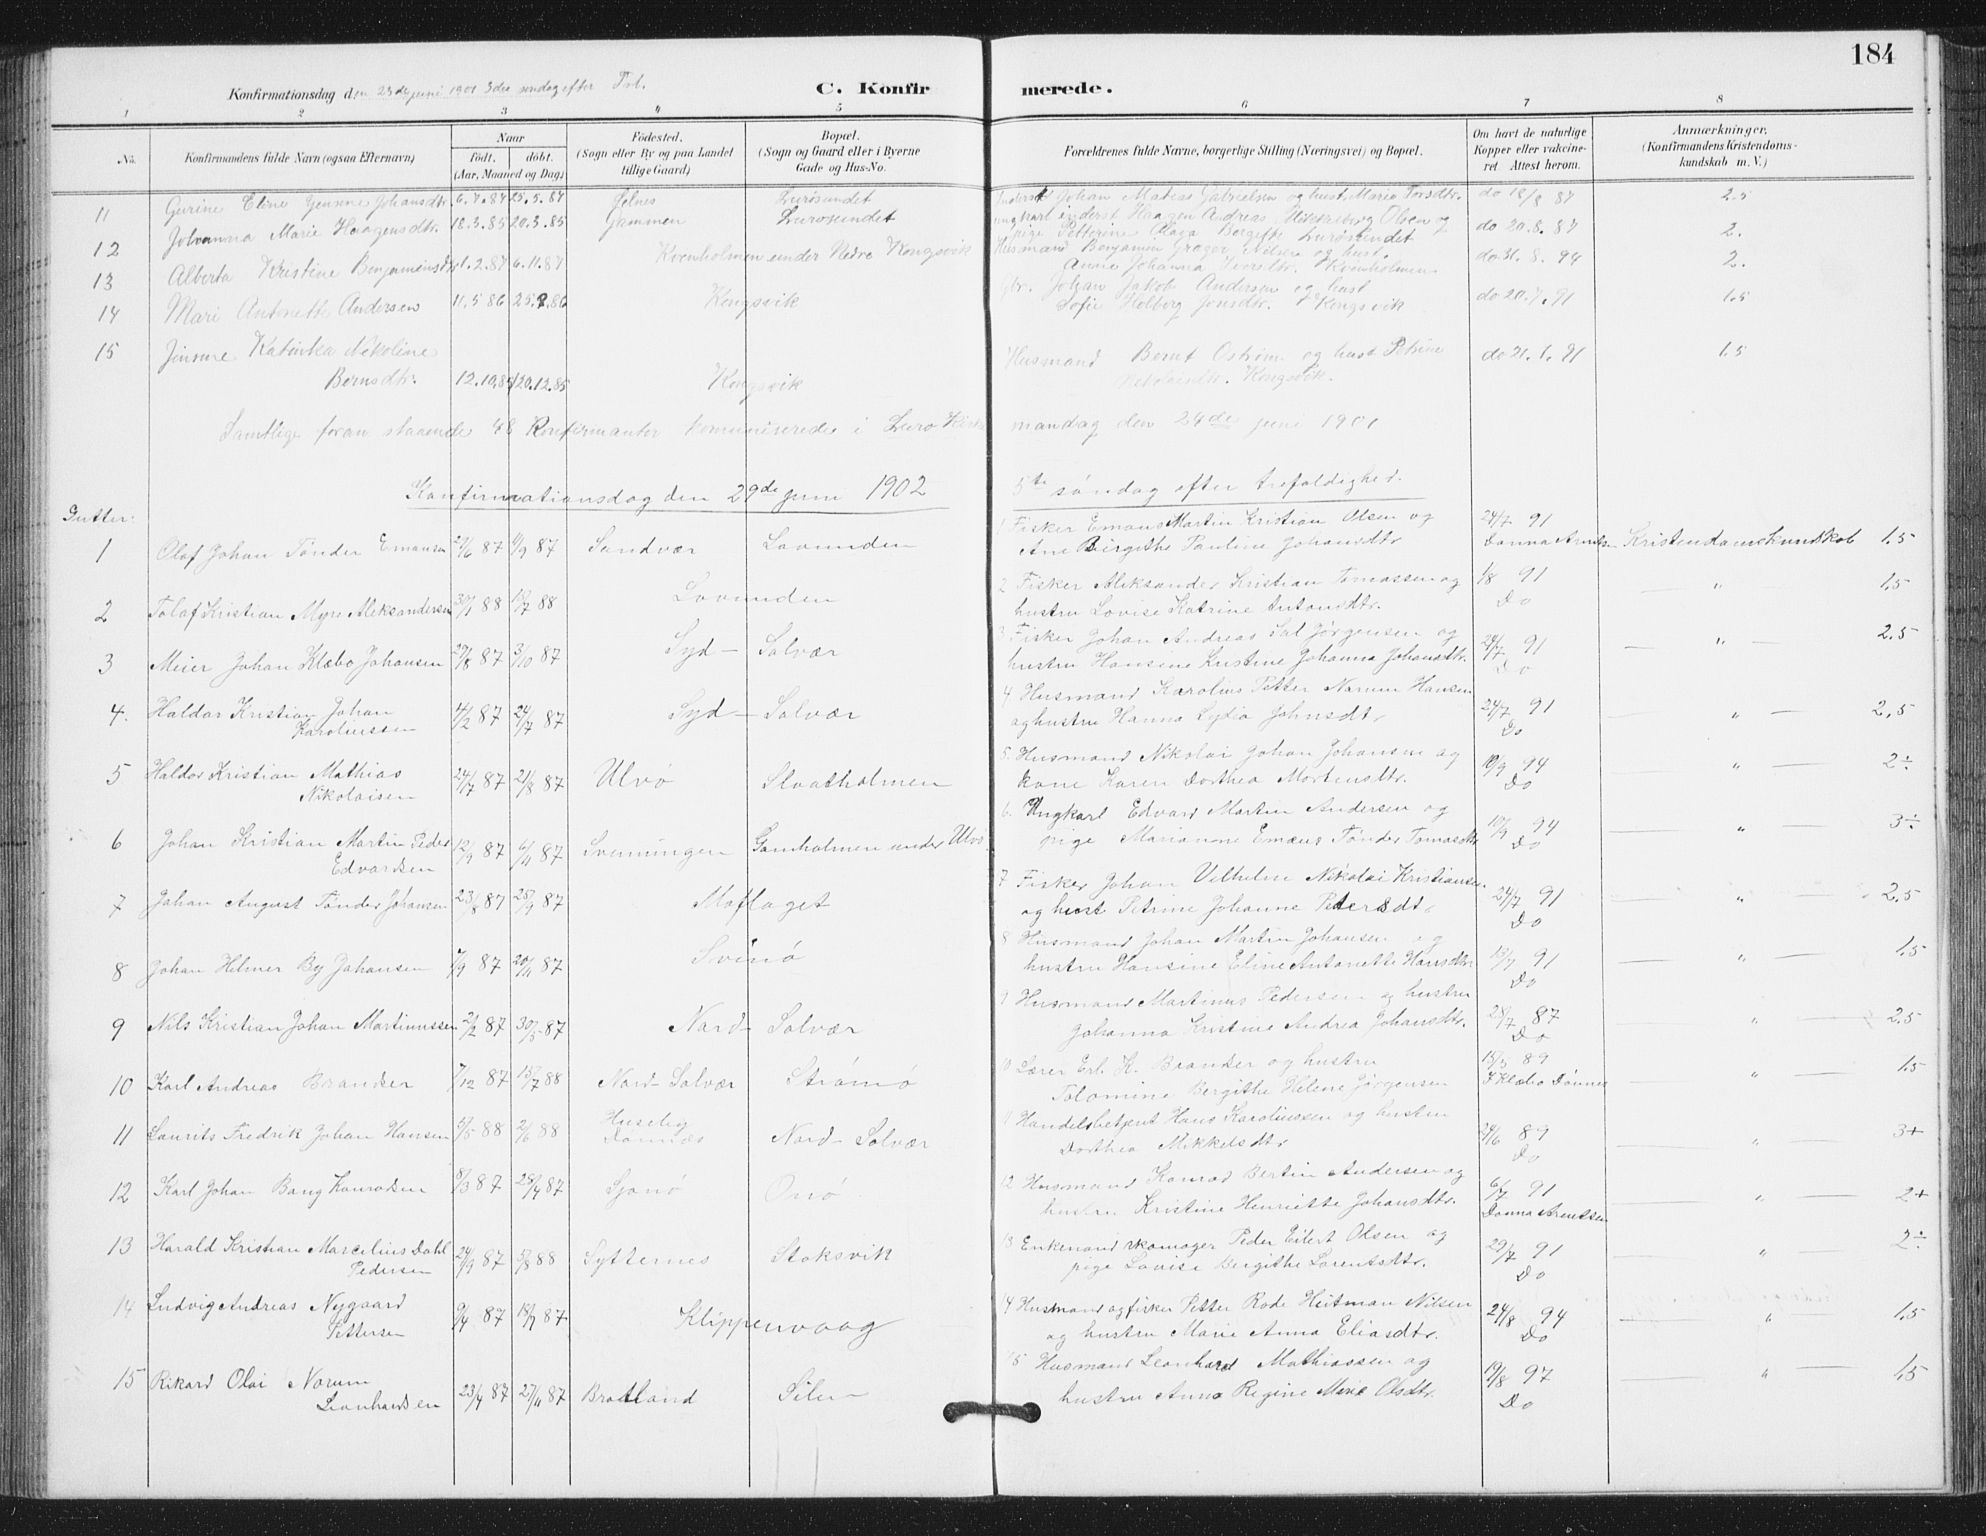 184
Konfirmationsdag den 23de juni 1901 3die søndag efter Tref.
C. Konfirmerede.
1 2 3 4 5 6 7 8
No.
Konfirmandens fulde Navn (ogsaa Efternavn)
Naar
født. døbt.
(Aar, Maaned og Dag)
Fødested.
(Sogn eller By og paa Landet
tillige Gaard)
Bopæl.
(Sogn og Gaard eller i Byerne
Gade og Hus-No.
Forældrenes fulde Navne, borgerlige Stilling (Næringsvei) og Bopæl.
Om havt de naturlige
Kopper eller vakcine-
ret. Attest herom.
Anmærkninger.
(Konfirmandens Kristendoms-
kundskab m. V.)
11 Gurine Eline Jensine Johansdtr. 25.5.87 Selnes Lurøsundet Inderst Johan Matias Gabrielsen og hust. Marie do 18/8 87 2.5
12 Johanna Marie Haagensdtr. 18.3.85 20.3.85 Gammen Lurøsundet ungkarl inderst Haagen Andreas Olsen og
pige Petterine Olava Lurøsundet do 20.8.87 2.
13 Alberta Kristine Benjaminsdtr. 1.2.87 6.11.87 Kvenholmen under Nedre Kongsvik Husmand Benjamin Nilsen og hust.
Anne Johanna Iversdtr. Kvenholmen do 31.8.94 2.
14 Mari Antonette Andersen 11.5.86 25.8.86 Kongsvik Gbr. Johan Jakob Andersen og hust
Sofie Holberg Jonsdtr. Kongsvik do 20.7.91 1.5
15 Jensine Katinka Nekoline
Bernsdtr. 12.10.85 20.12.85 Kongsvik Husmand Bernt Ostrøm og hust Petrine
Nekolaisdtr. Kongsvik. do 21.1.91 1.5
Samtlige foran staaende 48 Konfirmanter kommuniserede i Lurø Kirke mandag den 24de juni 1901
Konfirmationsdag den 29de juni 1902 5te søndag efter trefoldighed.
Gutter:
1 Olaf Johan Tønder Emausen 27/6 87 4/9 87 Sandvær Lovunden 1 Fisker Emaus Martin Kristian Olsen og
Ane Birgithe Pauline Johansdtr 24/7 91
Donna Arntsen Kristendomskundskab 1.5
2 Tolaf Kristian Myre Aleksandersen 30/1 88 12/7 88 Lovunden 2 Fisker Aleksander Kristian Tomassen og
hustru Lovise Katrine Antonsdtr. 1/8 91
Do " 1.5
3 Meier Johan Klæbo Johansen 29/8 87 3/10 87 Syd- Solvær 3 Fisker Johan Andreas Sal Jørgensen og
hustru Hansine Kristine Johanna Johansdtr. 24/7 91
Do " 2.5
4. Haldor Kristian Johan
Karoliussen 4/2 87 24/7 87 Syd- Solvær 4. Husmand Karolius Petter Norum Hansen
og hustru Hanna Lydia Johnsdtr 24/7 91
Do " 2,5
5 Haldor Kristian Mathias
Nikolaisen 24/7 87 21/8 87 Ulvø Slaatholmen 5. Husmand Nikolai Johan Johansen og
kone Karen Dorthea Mortensdtr. 10/9 94
Do " 2÷
6 Johan Kristian Martin Peder
Edvardsen 12/9 87 6/11 87 Svenningen Gamholmen under Ulvø 6. Ungkarl Edvard Martin Andersen og
pige Marianne Emæus Tønder Tomasdtr 10/9 94
Do " 3÷
7 Johan August Tønder Johansen 23/8 87 25/9 87 Moflaget 7 Fisker Johan Vilhelm Nikolai Kristiansen
og hust Petrine Johanne Petersdtr. 24/7 91
Do " 2.5
8 Johan Hilmer By Johansen 7/9 87 20/11 87 Svinø 8 Husmand Johan Martin Johansen og
hustru Hansine Eline Antonette Hansdtr 13/7 91
Do " 1.5
9 Nils Kristian Johan Martinussen 2/2 87 30/5 87 Nord- Solvær 9 Husmand Martinus Pedersen og hustru
Johanna Kristine Andrea Johansdtr. 28/7 87
Do " 2.5
10 Karl Andreas Brandser 7/12 87 15/7 88 Nord-Solvær Strømø 10 Lærer Erl. K. Brandser og hustru
Tolomine Bergithe Helene Jørgensen 15/3 89
Klæbo Dønnes " 1.5
11 Laurits Fredrik Johan Hansen 6/5 88 2/6 88 Huseby
Dønnæs Nord- Solvær 11 Handelsbetjent Hans Karoliussen og hustru
Dorthea Mikkelsdtr 24/6 89
Do " 3+
12 Karl Johan Bang Konradsen 8/3 87 25/4 87 Sjonø Onø 12 Husmand Konrad Bertin Andersen og
hustru Kristine Henriette Johansdtr. 6/7 91
Donna Arentsen " 2+
13 Harald Kristian Marcelius Dahl
Pedersen 24/9 87 5/8 88 Sytternes Stoksvik 13 Enkemand skomager Peder Eilert Olsen og
pige Lovise Bergithe Lorentsdtr. 29/7 91
Do " 2÷
14 Ludvig Andreas Nygaard
Pettersen 9/4 87 18/7 87 Klippenvaag 14 Husmand og fisker Petter Rode Heitman Nilsen
og hustru Marie Anna Eliasdtr. 24/8 94
Do " 1.5
15 Rikard Olai Norum
Leonhardsen 23/7 87 27/11 87 Bratland Silen 15 Husmand Leonhard Mathiassen og
hustru Anna Regine Marie Olsdtr. 19/8 97
Do " 1.5